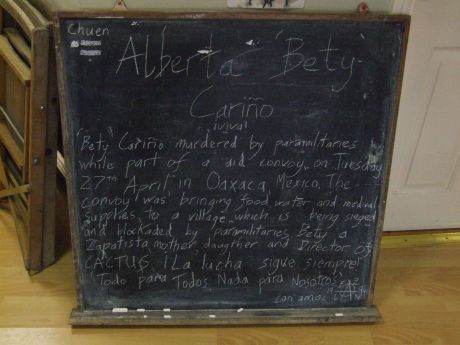 Chuen
Alberta 'Bety'
Cariño
¡viva!
'Bety' Cariño murdered by paramilitaries
while part of a aid convoy on Tuesday
27th April in Oaxaca, Mexico. The
convoy was bringing food, water and medical
supplies to a village which is being sieged
and blockaded by paramilitaries. Bety a
Zapatista, mother, daugther and Director of
CACTUS ¡La lucha sigue siempre!
'Todo para Todos Nada para Nosotros'
con amor